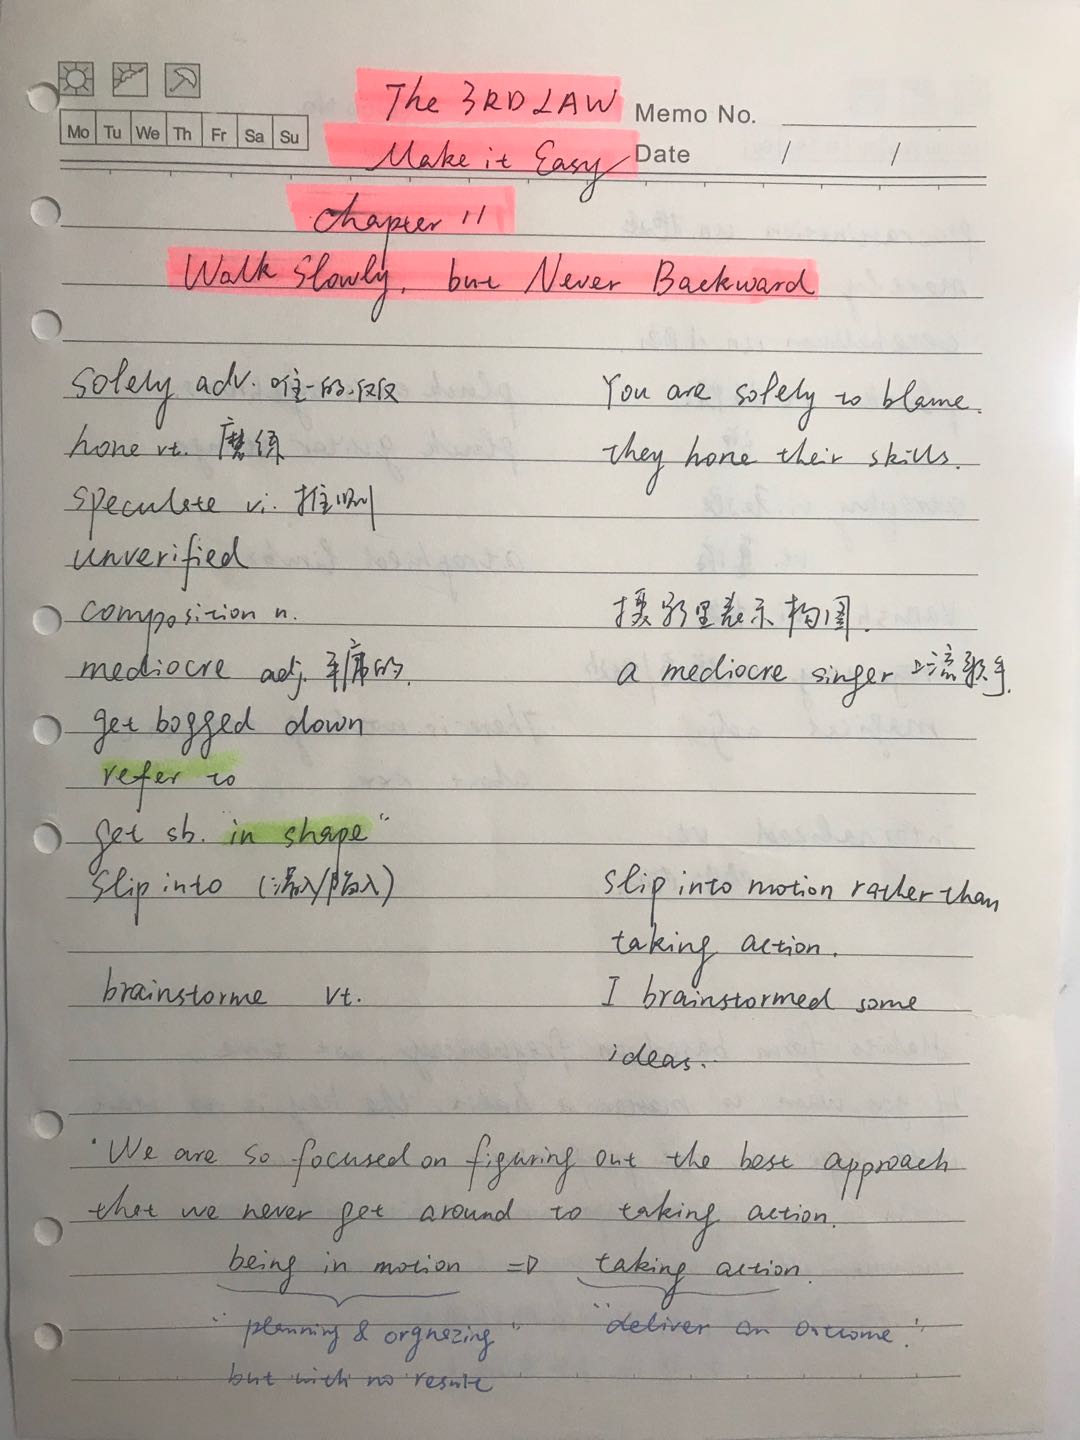 The 3RD LAW
Memo No.
Mo Tu We Th Fr Sa Su
Make it Easy
Date / /
Chapter 11
Walk Slowly, but Never Backward
solely adv. 唯一的.仅仅 You are solely to blame.
hone vt. 磨练 they hone their skills.
speculate vi. 推测
unverified
composition n. 摄影里表示构图.
mediocre adj. 平庸的. a mediocre singer 二流歌手.
get bogged down
refer to
get sb. "in shape"
Slip into (滑入/陷入) slip into motion rather than
taking action.
brainstorme vt. I brainstormed some
ideas..
"We are so focused on figuring out the best approach
that we never get around to taking action.
being in motion => taking action.
"planning & orgnezing" "deliver an outcome."
but with no result